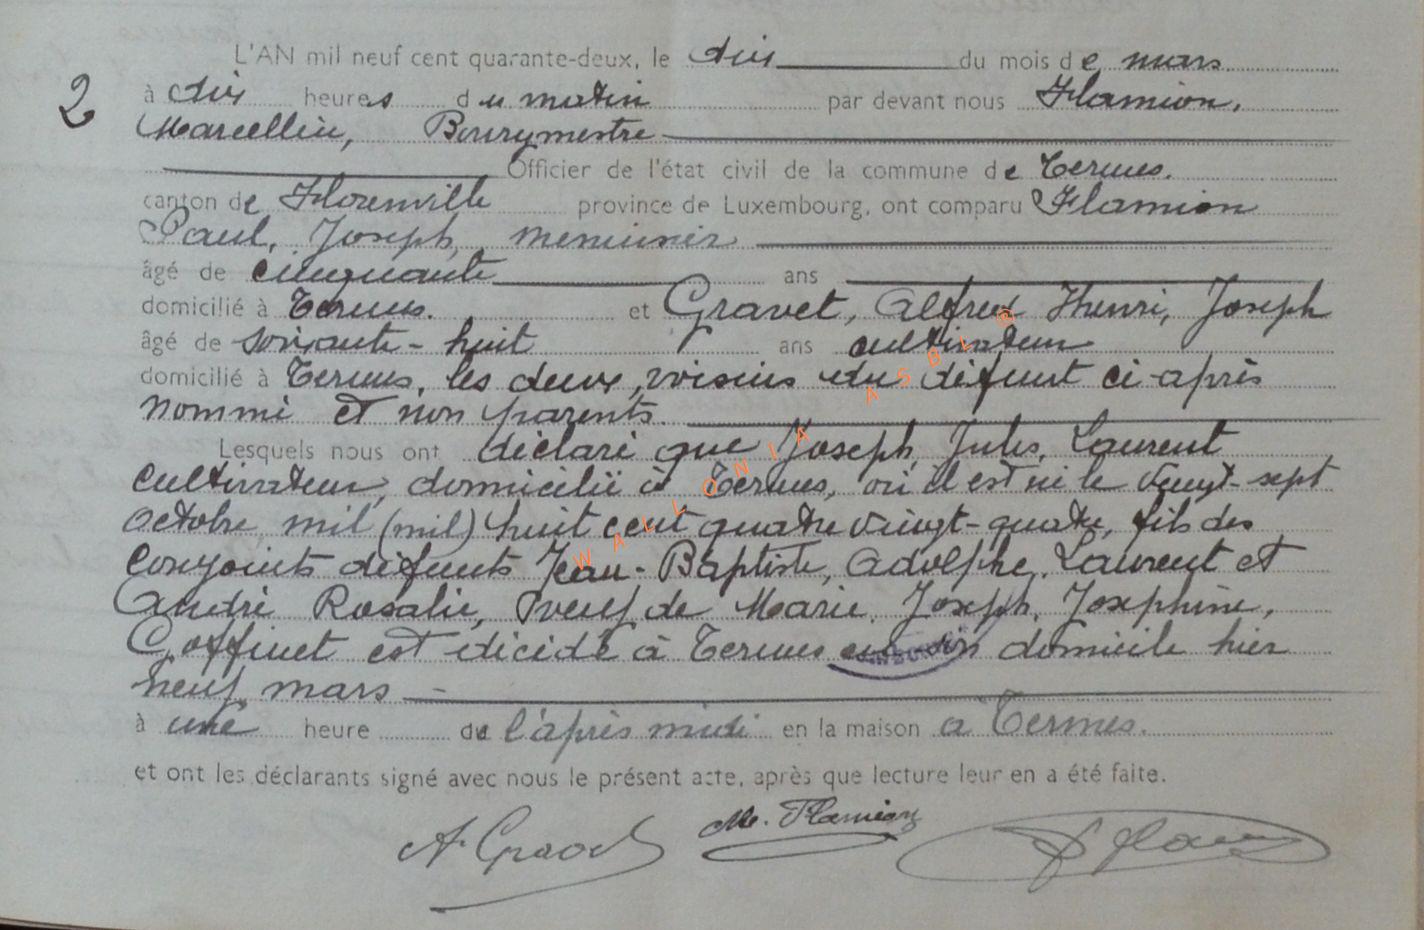 L'AN mil neuf cent quarante-deux, le dix du mois de mars
2
à dix heures du matin par devant nous Flamion,
Marcellin, Bourgmestre
Officier de l'état civil de la commune de Termes.
canton de Florenville province de Luxembourg, ont comparu Flamion
Paul, Joseph, menuisier
âgé de cinquante ans
domicilié à Termes. et Gravet, Alfred Henri, Joseph
âgé de soixante-huit ans cultivateur
domicilié à Termes, les deux voisins du défunt ci-après
nommé et non parents.
Lesquels nous ont déclaré que Joseph, Jules, Laurent
cultivateur, domicilié à Termes, où il est né le vingt-sept
octobre, mil (mil) huit cent quatre vingt-quatre, fils des
conjoints défunts Jean-Baptiste, Adolphe, Laurent et
André Rosalie, veuf de Marie, Joseph, Joséphine,
Goffinet est décidé à Termes en son domicile hier
neuf mars
à une heure de l'après midi en la maison a Termes.
et ont les déclarants signé avec nous le présent acte, après que lecture leur en a été faite.
A. Gravet Me. Flamion
WALLONIA ASBL ©